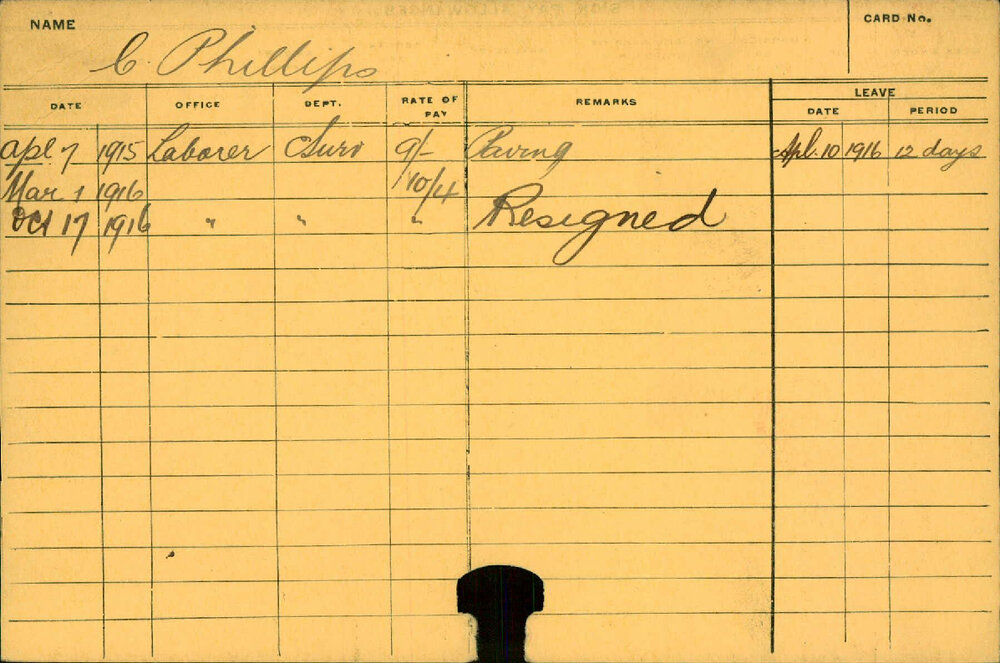 NAME
CARD No.
C. Phillips
DATE OFFICE DEPT. RATE OF PAY REMARKS LEAVE
DATE PERIOD
Apl 7 1915 Laborer CSurv 9/- Paving Apl. 10 1916 12 days
Mar 1 1916 10/4
Oct 17 1916 " " " Resigned